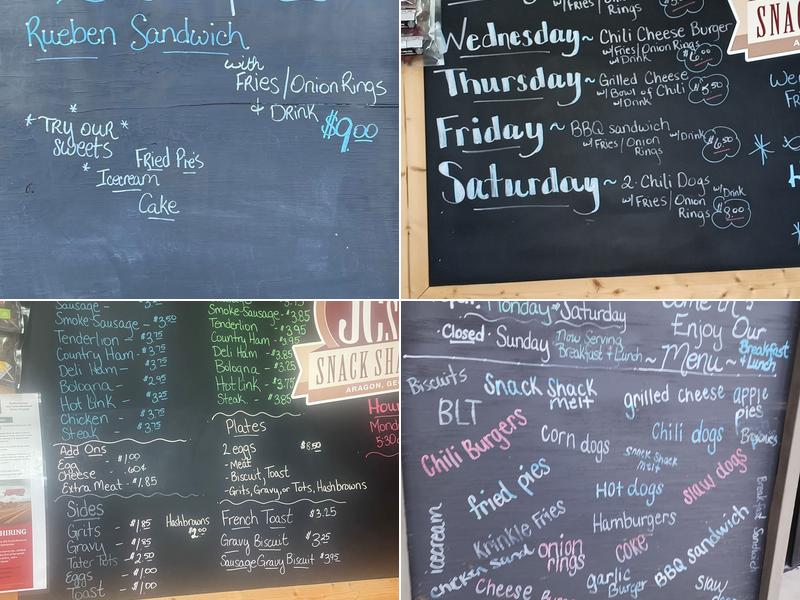 Rueben Sandwich
with
Fries/Onion Rings
& Drink
$9.00
*
* Try our *
sweets
*
Fried Pie's
Icecream
Cake
w/Fries/Onion
Rings
Wednesday~ Chili Cheese Burger
w/Fries/Onion Rings
w/Drink
Thursday~ Grilled Cheese
w/Bowl of Chili
w/Drink
Friday~ BBQ sandwich w/Drink
w/Fries/Onion
Rings
$6.50
Saturday~ 2 Chili Dogs
w/Drink
w/Fries/Onion
Rings
$8.00
SNAC
We
Fr
Sausage -
Smoke Sausage - $3.50
Tenderlion - $3.75
Country Ham - $3.75
Deli Ham - $3.75
Bologna - $2.95
Hot link - $3.25
Chicken - $3.75
Steak - $3.75
Add Ons
Egg $1.00
Cheese - .60¢
Extra Meat - $1.85
Sides
Grits - $1.85
Gravy - $1.85
Tater Tots - $2.50
Eggs - $1.00
Toast - $1.00
Hashbrowns
$2.00
Sausage
Smoke-Sausage - $3.85
Tenderlion
Country Ham
Deli Ham - $3.85
Bologna - $3.25
Hot link - $3.75
Steak - $3.85
Plates
2 eggs $8.50
-Meat
-Biscuit, Toast
-Grits, Gravy, or Tots, Hashbrowns
French Toast - $3.25
Gravy Biscuit - $3.25
Sausage Gravy Biscuit $3.95
JC'S
SNACK SHA
ARAGON, GE
Hour
Mond
5:30
HIRING
Monday - Saturday
Closed - Sunday
Now Serving
Breakfast & Lunch
Come in &
Enjoy Our
~ Menu ~
Breakfast
& Lunch
Biscuits
Snack Shack
melt
grilled cheese
apple
pies
BLT
Chili Burgers
Corn dogs
Chili dogs
Brownies
Snack Shack
melt
fried pies
Hot dogs
slaw dogs
icecream
Krinkle Fries
Hamburgers
Breakfast Sandwich
chicken sand
onion
rings
coke
BBQ sandwich
garlic
Burger
Cheese
Slaw